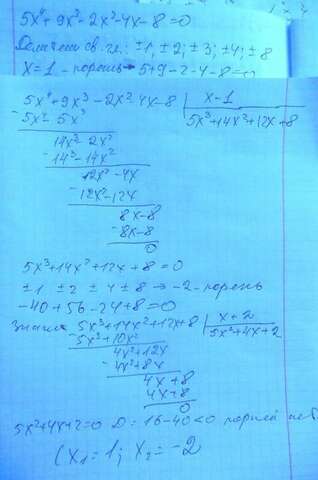 5x⁴+9x³-2x²-4x-8=0
Делители св. чл.: ±1, ±2; ±3; ±4; ±8
x=1 - корень 5+9-2-4-8=0
5x⁴+9x³-2x²-4x-8 | x-1
- 5x⁴-5x³ 5x³+14x²+12x+8
14x³-2x²
- 14³-14x²
12x²-4x
- 12x²-12x
8x-8
- 8x-8
0
5x³+14x²+12x+8=0
±1 ±2 ±4 ±8 ⇒ -2 - корень
-40+56-24+8=0
значит 5x³+14x²+12x+8 | x+2
5x³+10x² 5x²+4x+2
4x²+12x
- 4x²+8x
4x+8
4x+8
0
5x²+4x+2=0 D=16-40<0 корней нет
(x₁=1; x₂=-2